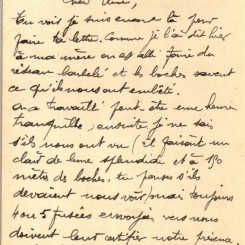 Cher Aimé,
Tu vois je suis encore là pour
faire ta lettre. Comme je l'ai dit hier
à ma mère on est allé faire du
réseau barbelé et les boches savent
ce qu'ils nous ont embêté.
On a travaillé peut-être une heure
tranquille, ensuite je ne sais
s'ils nous ont vu (il faisait un
clair de lune splendide et à 150
mètres de boches, tu penses s'ils
devaient nous voir) mais toujours
4 ou 5 fusées envoyées vers nous
doivent leur certifier notre présence